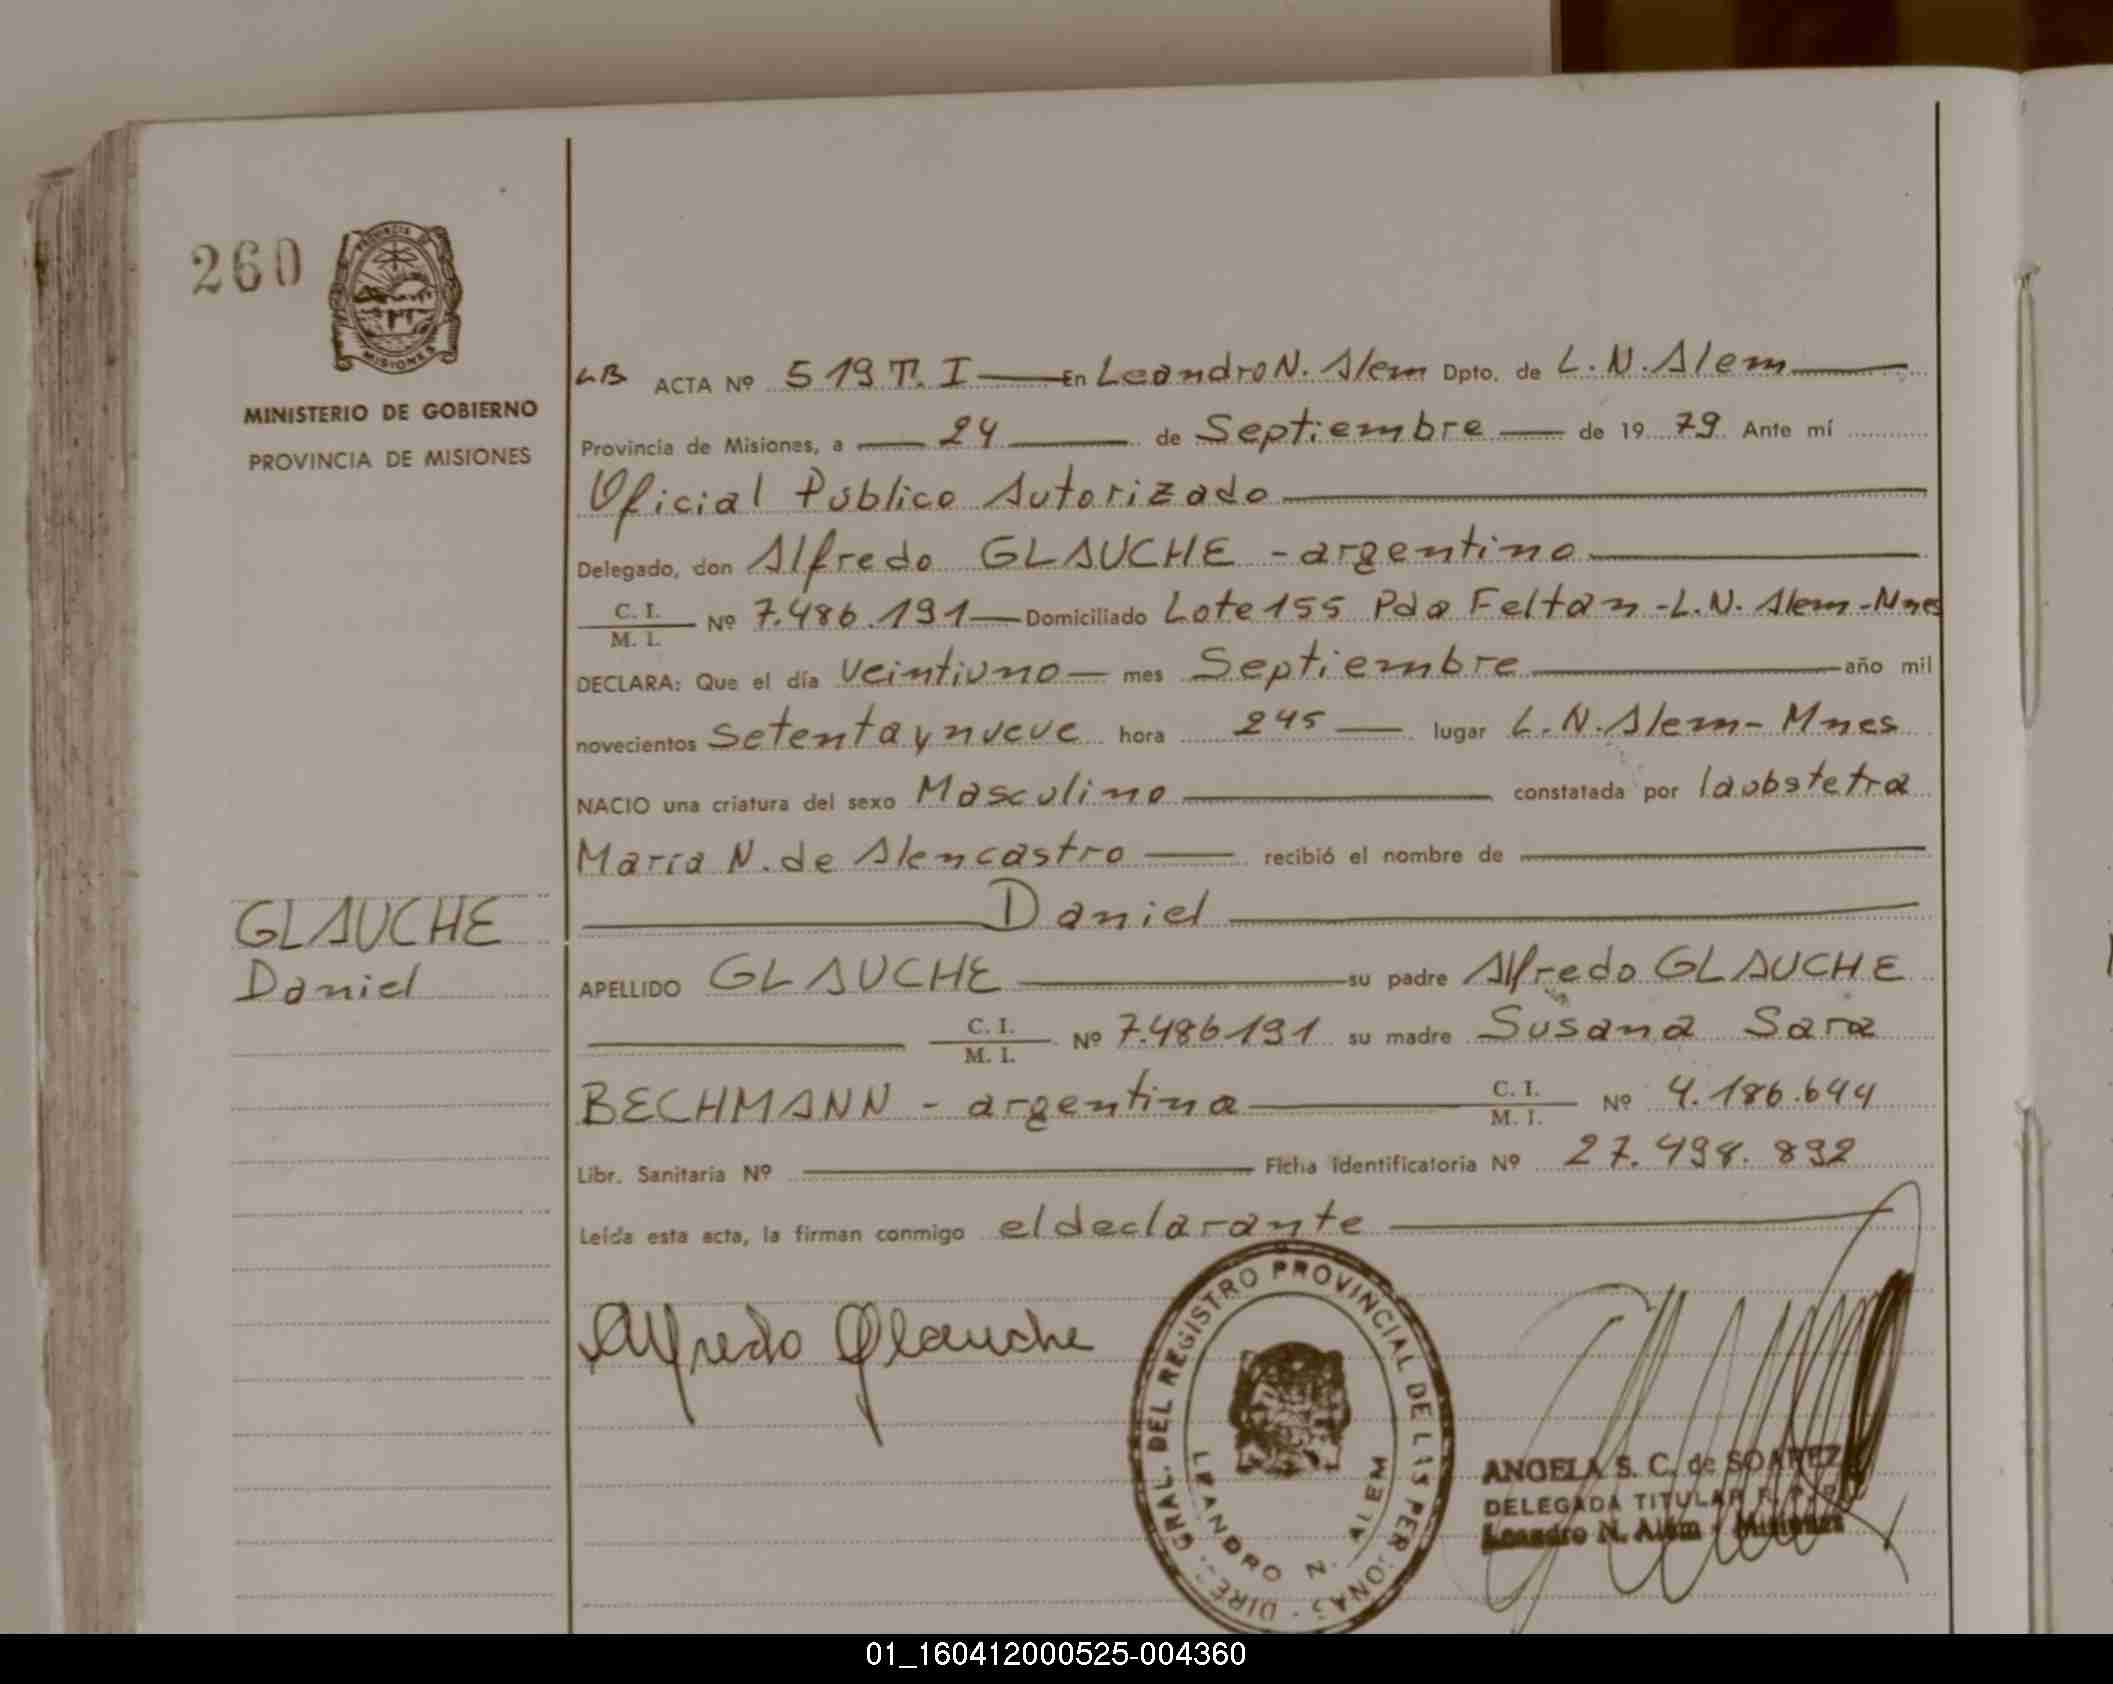 260
PROVINCIA DE
MISIONES
MINISTERIO DE GOBIERNO
PROVINCIA DE MISIONES
GLAUCHE
Daniel
LB ACTA Nº 519 T. I En Leandro N. Alem Dpto. de L. N. Alem
Provincia de Misiones, a 24 de Septiembre de 1979 Ante mí
Oficial Público Autorizado
Delegado, don Alfredo GLAUCHE - argentino
C. I.
M. I. Nº 7.486.191 Domiciliado Lote 155 Pda Feltan - L. N. Alem - Mnes
DECLARA: Que el día veintiuno mes Septiembre año mil
novecientos setenta y nueve hora 245 lugar L. N. Alem - Mnes
NACIO una criatura del sexo Masculino constatada por la obstetra
María N. de Alencastro recibió el nombre de
Daniel
APELLIDO GLAUCHE su padre Alfredo GLAUCHE
C. I.
M. I. Nº 7.486.191 su madre Susana Sara
BECHMANN - argentina C. I.
M. I. Nº 4.186.644
Libr. Sanitaria Nº Ficha Identificatoria Nº 27.498.892
Leída esta acta, la firman conmigo el declarante
Alfredo Glauche
DIREC. GRAL. DEL REGISTRO PROVINCIAL DE LAS PERSONAS
LEANDRO N. ALEM
ANGELA S. C. de SOAREZ
DELEGADA TITULAR R. P. P.
Leandro N. Alem - Misiones
01_160412000525-004360